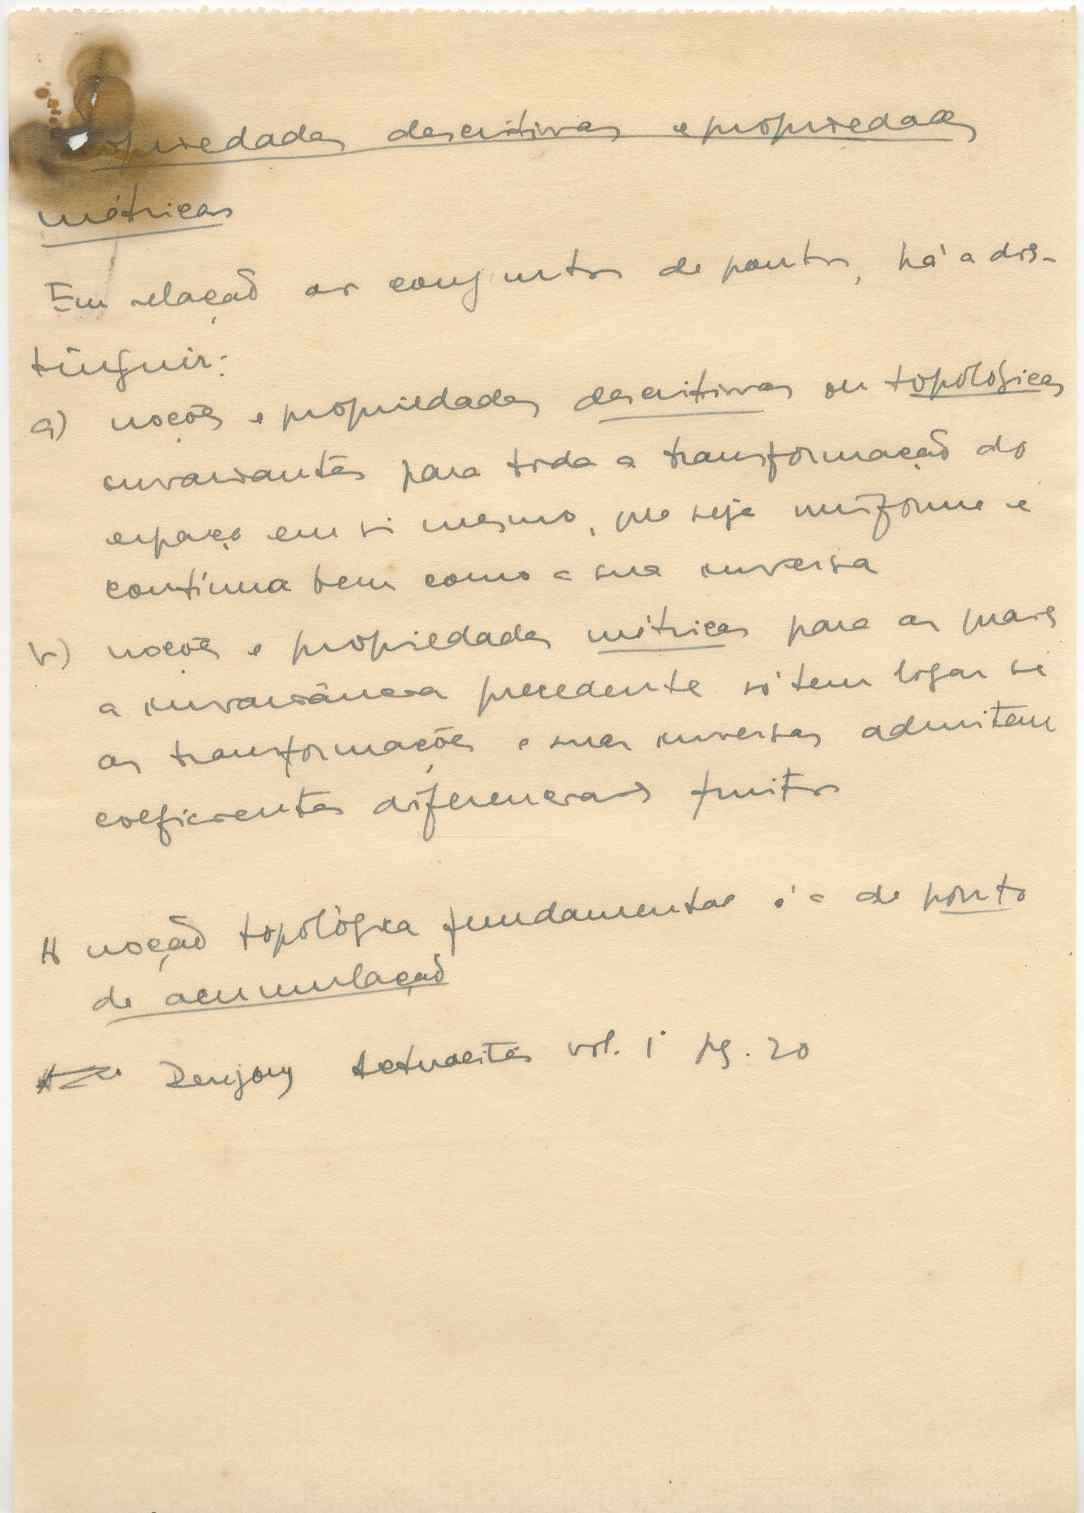 propriedades descritivas e propriedades
métricas
Em relação aos conjuntos de pontos, há a dis-
tinguir:
a) noções e propriedades descritivas ou topológicas
invariantes para toda a transformação do
espaço em si mesmo, que seja uniforme e
contínua bem como a sua inversa
b) noções e propriedades métricas para as quais
a invariância precedente só tem logar se
as transformações e suas inversas admitem
coeficientes diferenciais finitos
A noção topológica fundamental é a de ponto
de acumulação
Denjoy Actualités vol. 1 pg. 20